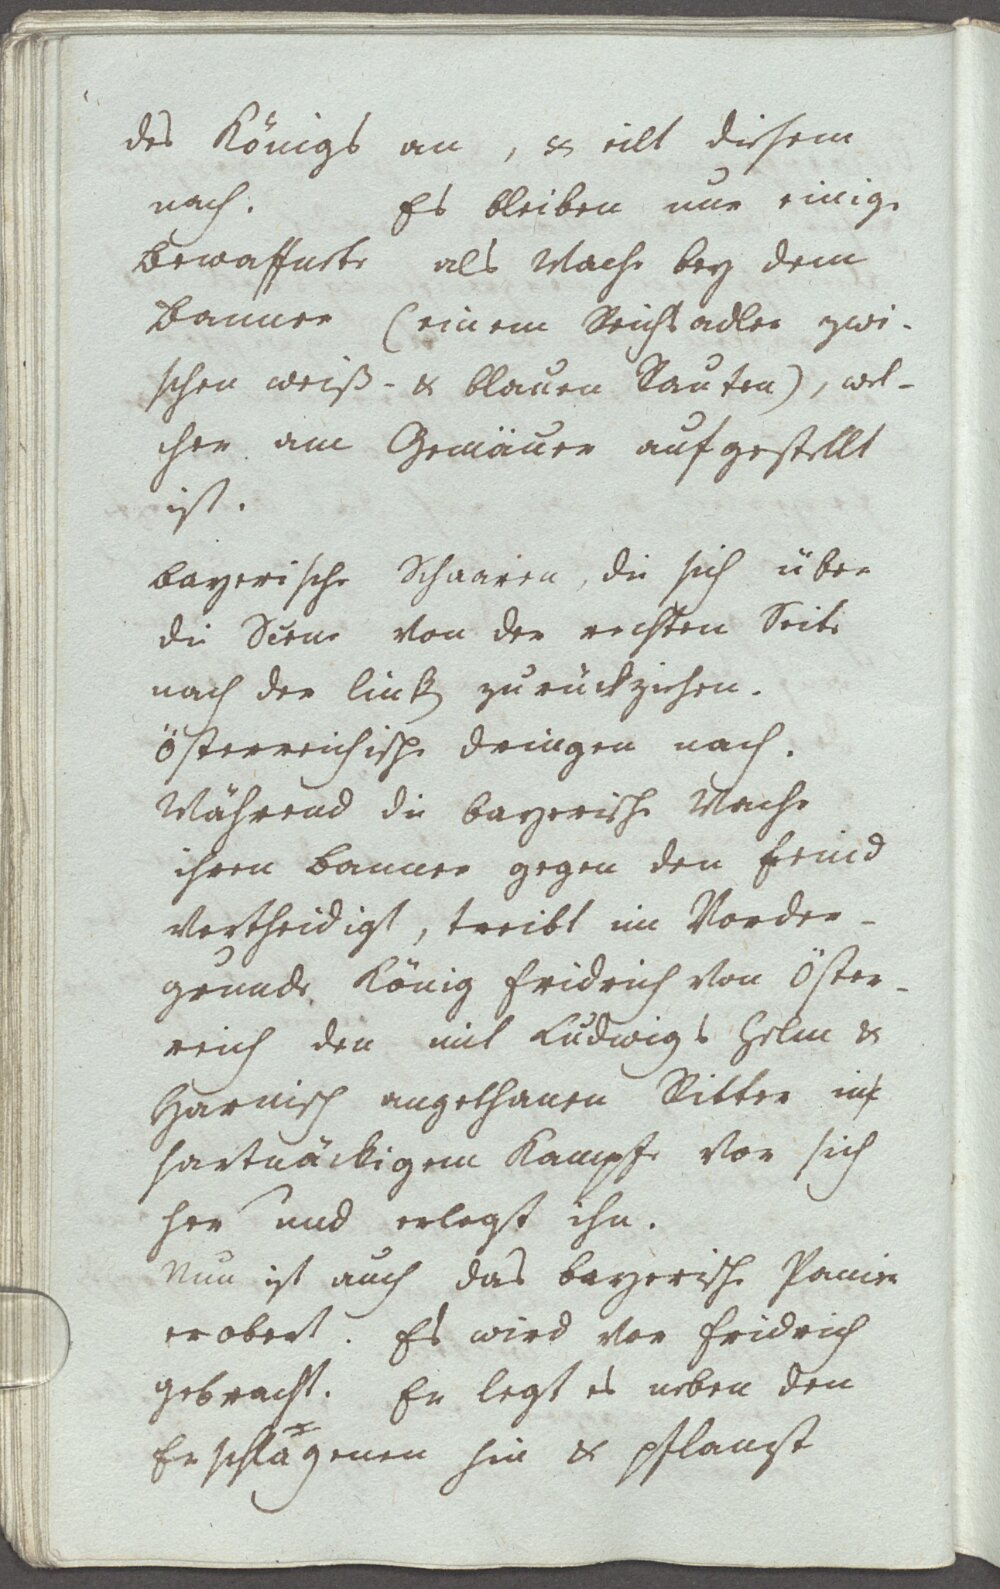 des Königs an, & eilt diesem
nach. Es bleiben nur einige
Bewaffnete als Wache bey dem
Banner (einem Reichsadler zwi-
schen weiß- & blauen Rauten), wel-
cher am Gemäuer aufgestellt
ist.
Bayerische Schaaren, die sich über
die Scene von der rechten Seite
nach der linken zurückziehen.
Österreichische dringen nach.
Während die bayerische Wache
ihren Banner gegen den Feind
vertheidigt, treibt im Vorder-
grunde König Fridrich von Öster-
reich den mit Ludwigs Helm &
Harnisch angethanen Ritter in
hartnäckigem Kampfe vor sich
her und erlegt ihn.
Nun ist auch das bayerische Panier
erobert. Es wird vor Fridrich
gebracht. Er legt es neben den
Erschlagenen hin & pflanzt